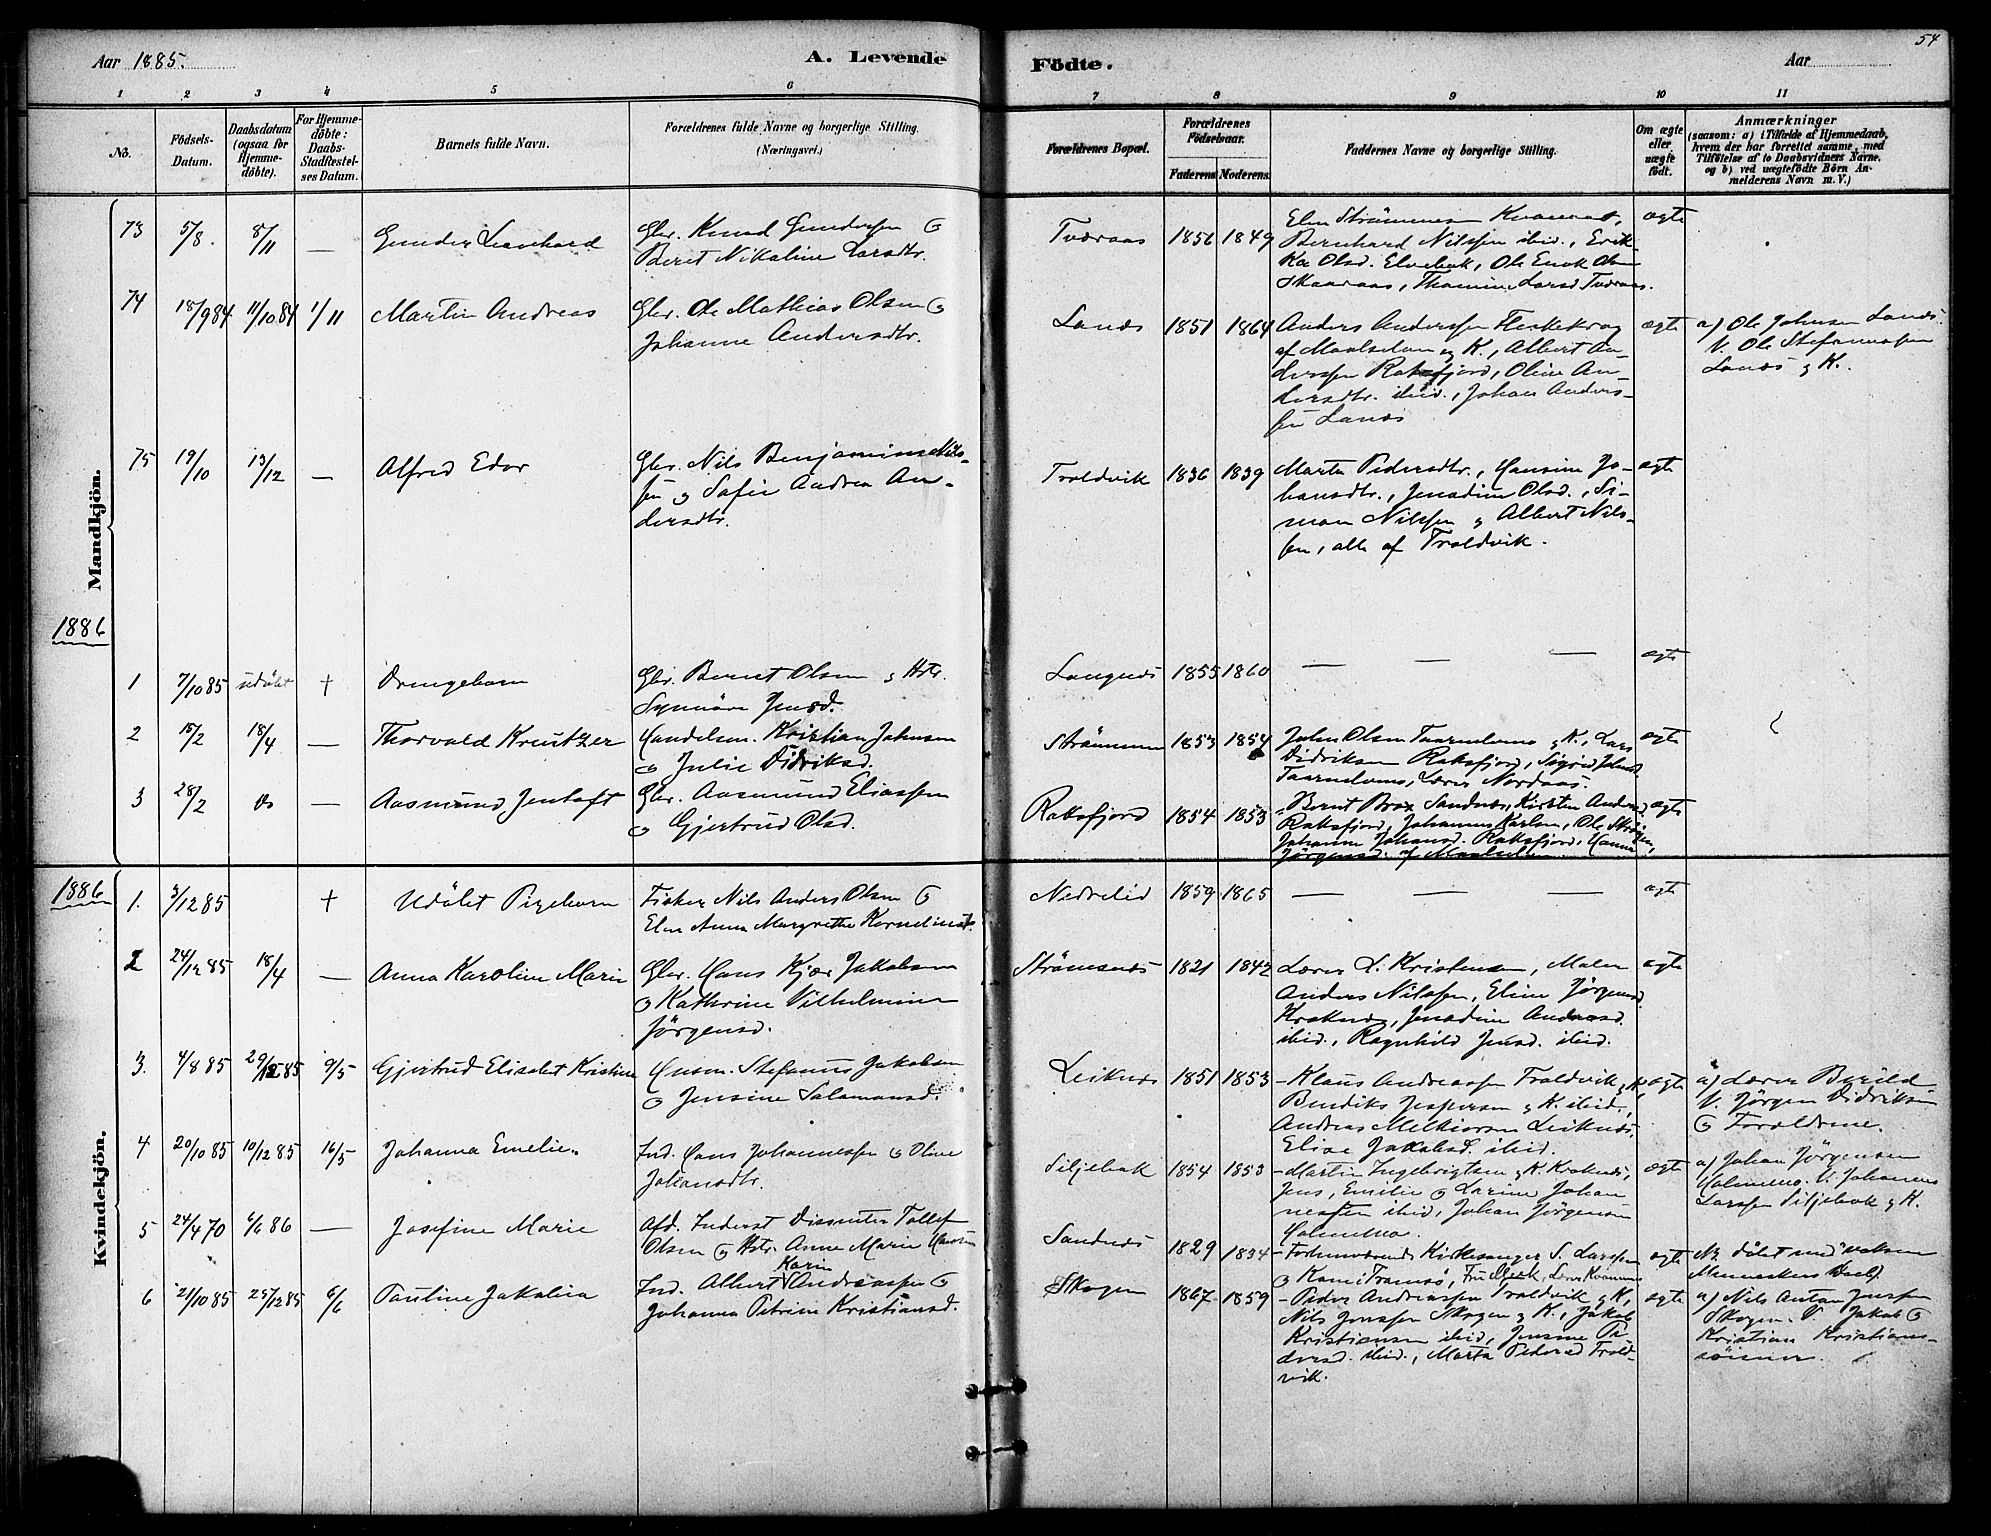 54
Aar 1885.
A. Levende Födte.
Aar
1 2 3 4 5 6 7 8 9 10 11
No.
Födsels-Datum.
Daabsdatum (ogsaa for Hjemme-döbte).
For Hjemme-döbte: Daabs-Stadfæstel-ses Datum.
Barnets fulde Navn.
Forældrenes fulde Navne og borgerlige Stilling.
(Næringsvei.)
Forældrenes Bopæl.
Forældrenes Födselsaar.
Faderens Moderens
Faddernes Navne og borgerlige Stilling.
Om ægte eller uægte födt.
Anmærkninger
(saasom: a) i Tilfælde af Hjemmedaab,
hvem der har forrettet samme, med
Tilföielse af to Daabsvidners Navne.
og b) ved uægtefödte Börn An-
melderens Navn m.V.)
Mandkjön.
73 5/8. 8/11 — Gunder Leonhard
Gbr. Knud Gundersen &
Beret Nikoline Larsdtr.
Tværaas 1856 1849
Elen Strömmen Kvænnes,
Bernhard Nilssen ibid., Erik-
ka Olsd. Elvebak, Ole Enok Olsen
Skaaraas, Thomine Larsd Tværaas.
ægte
74 18/9 84 11/10 84 1/11 Martin Andreas
Gbr. Ole Mathias Olsen &
Johanne Andersdtr.
Lanæs 1851 1864
Anders Anderssen Fleskekrog
af Maalselven og K., Albert An-
derssen Raksfjord, Oline An-
dersdtr. ibid., Johan Anders-
sen Lanæs
ægte
a) Ole Johnsen Lanæs.
V. Ole Stefanussen
Lanæs & K.
75 19/10 13/12 — Alfred Edor
Gbr. Nils Benjamin Nils-
sen & Sofie Andrea An-
dersdtr.
Troldvik 1836 1839
Marta Pedersdtr., Hansine Jo-
hansdtr., Jensdine Olsd., Si-
mon Nilssen & Albert Nils-
sen, alle af Troldvik.
ægte
1886
1 7/10 85 udöbt † Drengebarn
Gbr. Bernt Olsen & Hstr.
Synnöve Jensd.
Langnæs 1855 1860
— — —
ægte
2 15/2 18/4 — Thorvald Kreutzer
Handelsm. Kristian Johnsen
& Julie Didriksd.
Strömmen 1853 1854
John Olsen Taarnelvmo & K., Lars
Didriksen Raksfjord, Sigrid Johnsd.
Taarnelvmo, Lærer Nordaas.
ægte
3 28/2 do — Aasmund Jentoft
Gbr. Aasmund Eliassen
& Gjertrud Olsd.
Raksfjord 1854 1853
Bernt Brox Sandnæs, Kirsten Anders.
Raksfjord, Johannes Karlsen, Ole
Johanne Johansd. Raksfjord, Hanna
Jörgensd. af Maalselven.
ægte
Kvindekjön.
1886
1. 3/12 85 † Udöbt Pigebarn
Fisker Nils Anders Olsen &
Elen Anna Margrethe Korneliusd.
Nedrelid 1859 1865
— — —
ægte
2 24/12 85 18/4 — Anna Karoline Marie
Gbr. Hans Kjær Jakobsen
& Kathrine Vilhelmine
Jörgensd.
Strömsnæs 1821 1842
Lærer L. Kristensen, Maler
Anders Nilssen, Eline Jörgensd.
Kraknæs, Jensdine Andreasd.
ibid., Ragnhild Jensd. ibid.
ægte
3. 4/8 85 29/12 85 9/5 Gjertrud Elisabet Kristine
Husm. Stefanus Jakobsen
& Jensine Salamonsd.
Leiknæs 1851 1853
Klaus Andreassen Troldvik & K,
Bendiks Jespersen & K. ibid.,
Andreas Melkiorsen Leiknæs,
Elise Jakobsd. ibid.
ægte
a) Lærer Berild
V. Jörgen Didriksen
& Forældrene.
4 20/10 85 10/12 85 16/5 Johanna Emelie.
Ind. Hans Johannessen & Oline
Johansdtr.
Siljebak 1854 1853
Martin Ingebrigtsen & K. Kraknæs,
Jens, Emilie & Larine Johan
nessen ibid., Johan Jörgensen
Holmemo.
ægte
a) Johan Jörgensen
Holmemo. V. Johannes
Larssen Siljebak & K.
5 24/4 70 6/6 86 — Josefine Marie
Afd. Inderst Dissenter Tollef
Olsen & Hstr. Anne Marie Hansen
Sandnæs 1829 1834
Forhenværende Kirkesanger S. Larssen
& Kone i Tromsö, Fru Lærer
ægte
NB. döbt med "voksne
Menneskers Daab".
6 21/10 85 25/12 85 6/6 Pauline Jakobea
Ind. Albert Karin Andreassen &
Johanna Petrine Kristiansd.
Skogen 1867 1859
Peder Andreassen Troldvik & K,
Nils Jenssen Skogen & K., Jakob
Kristiansen ibid., Jensine Pe
dersd. ibid., Marta Pedersd Trold-
vik.
ægte
a) Nils Antan Jenssen
Skogen. V. Jakob &
Kristian Kristians-
sönner.